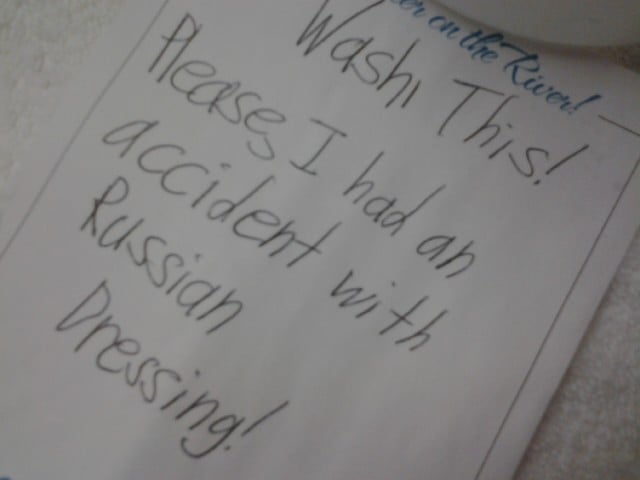 on the River!
Wash This!
Please, I had an
accident with
Russian
Dressing!